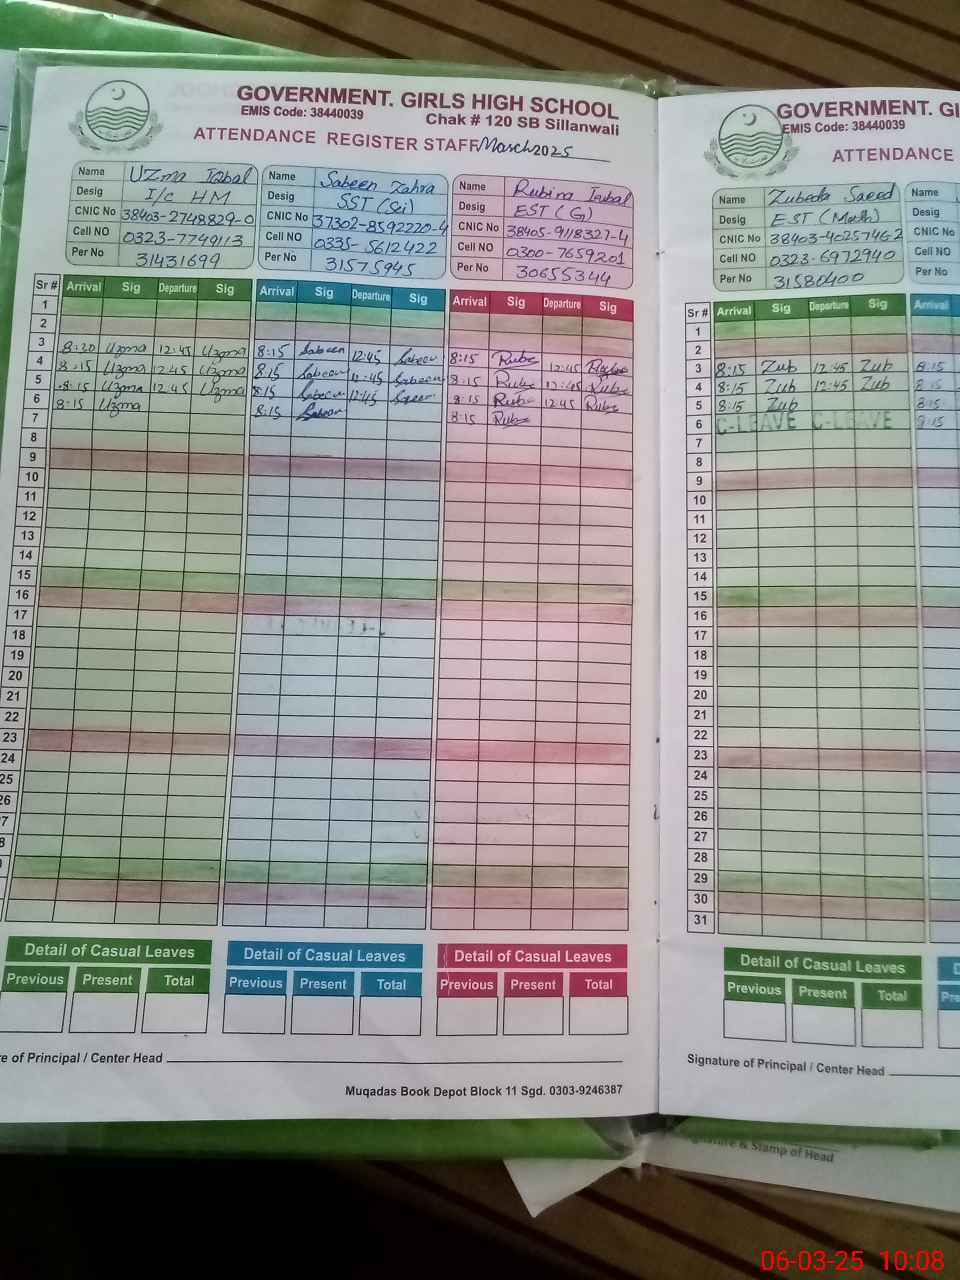 GOVERNMENT. GIRLS HIGH SCHOOL
EMIS Code: 38440039
Chak # 120 SB Sillanwali
ATTENDANCE REGISTER STAFF March 2025
Name Uzma Iqbal
Desig I/c HM
CNIC No 38403-2748829-0
Cell NO 0323-7749113
Per No 31431699
Name Sabeen Zahra
Desig SST (Sci)
CNIC No 37302-8592220-4
Cell NO 0335-5612422
Per No 31575945
Name Rubina Iqbal
Desig EST (G)
CNIC No 38405-9118327-4
Cell NO 0300-7659201
Per No 30655344
Sr # Arrival Sig Departure Sig Arrival Sig Departure Sig Arrival Sig Departure Sig
1
2
3 8:20 Uzma 12:45 Uzma 8:15 Sabeen 12:45 Sabeen 8:15 Rube 12:45 Rube
4 8:15 Uzma 12:45 Uzma 8:15 Sabeen 12:45 Sabeen 8:15 Rube 12:45 Rube
5 8:15 Uzma 12:45 Uzma 8:15 Sabeen 12:45 Sabeen 8:15 Rube 12:45 Rube
6 8:15 Uzma 8:15 Sabeen 8:15 Rube
7
8
9
10
11
12
13
14
15
16
17
18
19
20
21
22
23
24
25
26
27
Detail of Casual Leaves Detail of Casual Leaves Detail of Casual Leaves
Previous Present Total Previous Present Total Previous Present Total
re of Principal / Center Head
Muqadas Book Depot Block 11 Sgd. 0303-9246387
GOVERNMENT. GI
EMIS Code: 38440039
ATTENDANCE
Name Zubeda Saeed
Desig EST (Math)
CNIC No 38403-4025746-2
Cell NO 0323-6972940
Per No 31580400
Name
Desig
CNIC No
Cell NO
Per No
Sr # Arrival Sig Departure Sig Arrival
1
2
3 8:15 Zub 12:45 Zub 8:15
4 8:15 Zub 12:45 Zub 8:15
5 8:15 Zub 8:15
6 C-LEAVE C-LEAVE 8:15
7
8
9
10
11
12
13
14
15
16
17
18
19
20
21
22
23
24
25
26
27
28
29
30
31
Detail of Casual Leaves
Previous Present Total
Signature of Principal / Center Head
& Stamp of Head
06-03-25 10:08